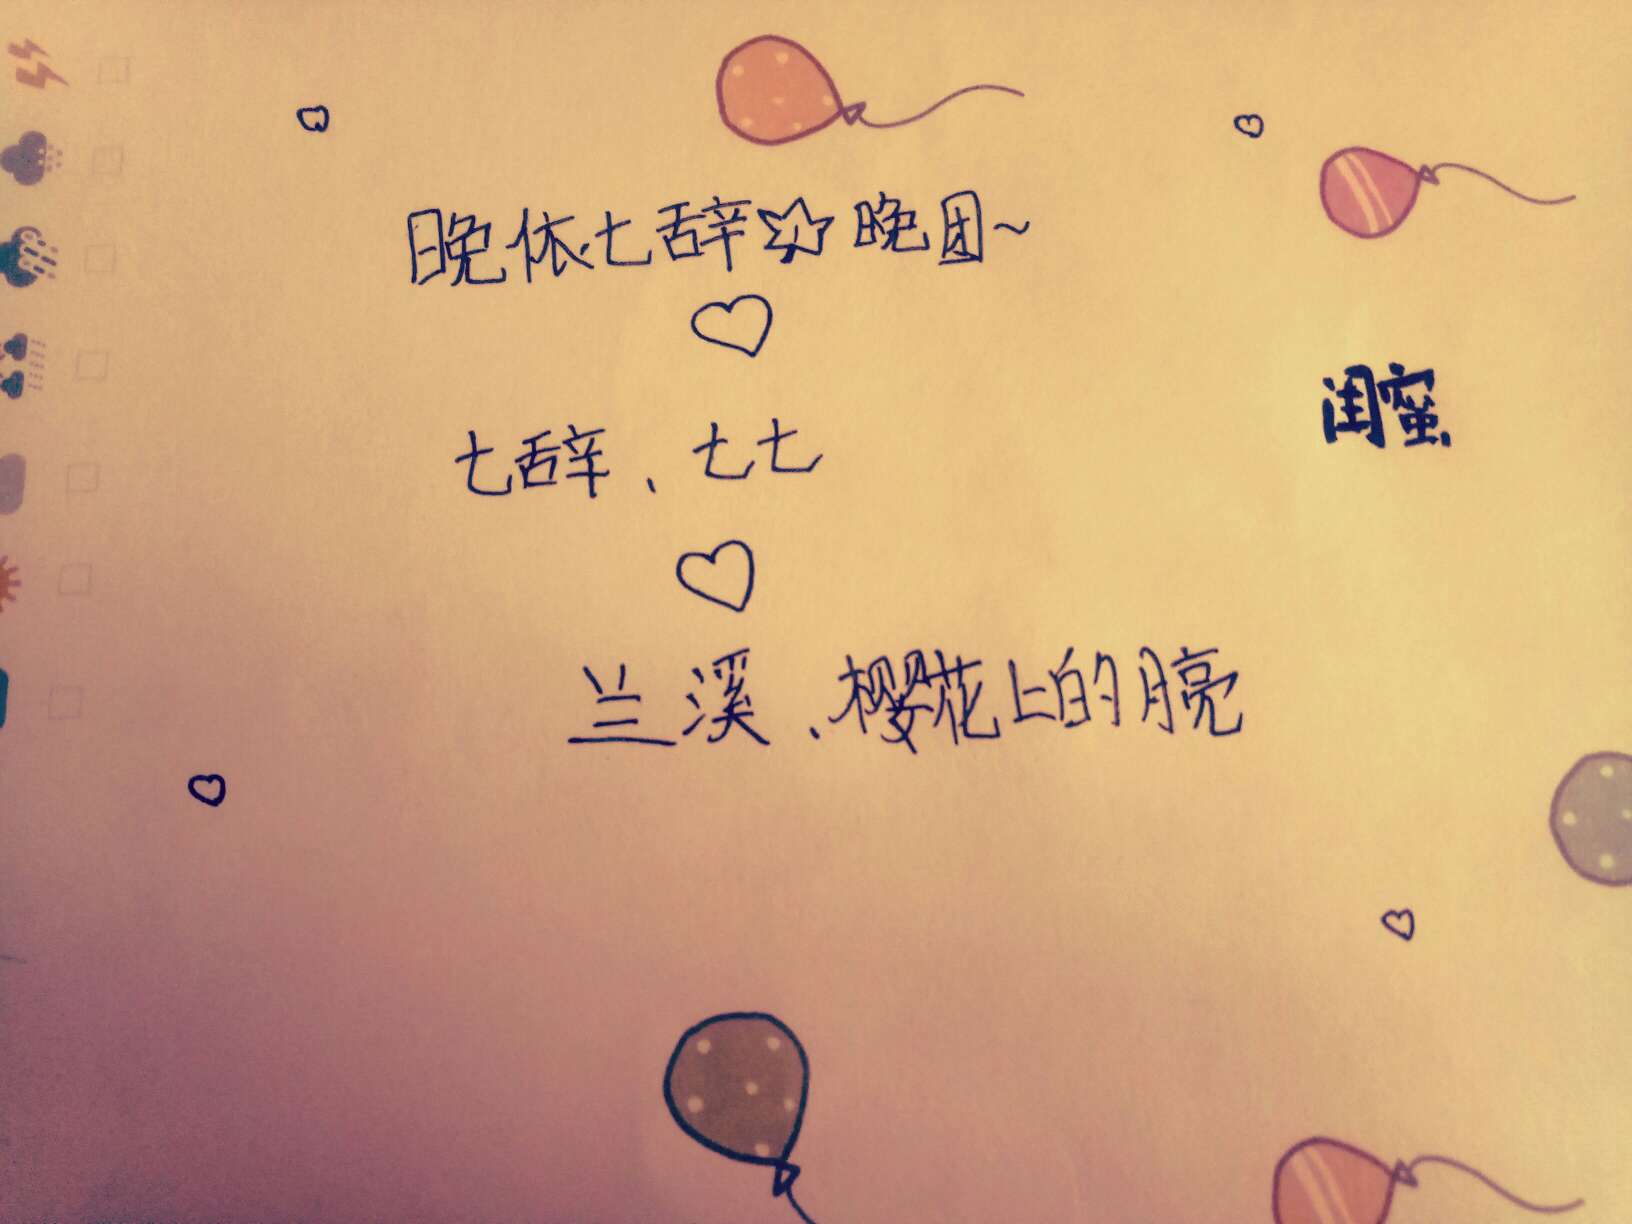 晚依七辞☆晚团~
闺蜜
七辞、七七
兰溪、樱花上的月亮